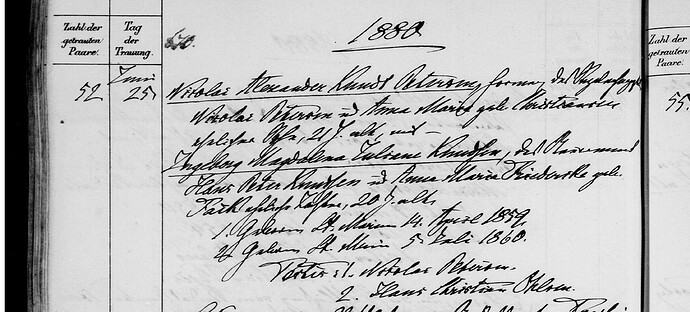 Zahl der getrauten Paare.
Tag der Trauung.
1880.
Zahl der getrauten Paare.
52
Juni 25
Nicolai Alexander Knudt Petersen, des
Nicolai Petersen u Anna Maria geb. Christiansen
ehelicher Sohn, 21 J. alt, mit —
Ingeborg Magdalena Juliane Knudsen, des
Hans Peter Knudsen u Anna Maria Friederike geb.
eheliche Tochter, 20 J. alt.
1. Geboren St. Marien 14. April 1859
2. Geboren St. 5. Juli 1860.
Testes: 1. Nicolai Petersen.
2. Hans Christian Ohlsen.
55.